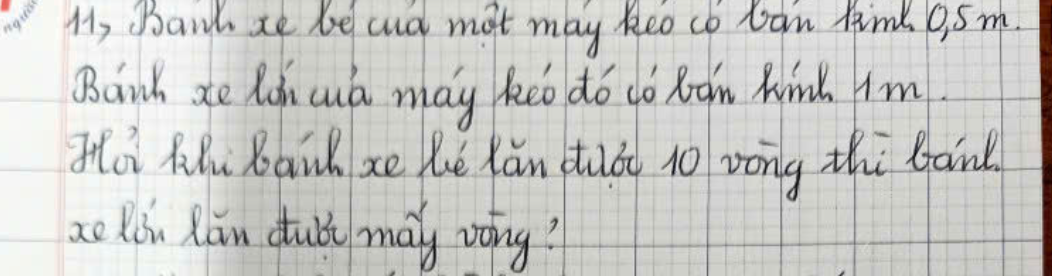 người
11, Bánh xe bé của một máy kéo có bán kính 0,5m.
Bánh xe lớn của máy kéo đó có bán kính 1m.
Hỏi khi bánh xe bé lăn được 10 vòng thì bánh
xe lớn lăn được mấy vòng?